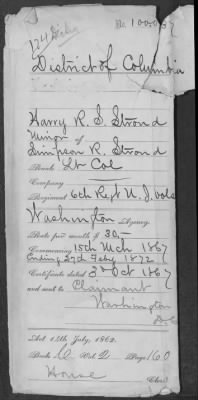 No. 100.037
District of Columbia
Harry R. S. Stroud
Minor of
Simpson R. Stroud
Rank: Lt Col
Company
Regiment 6th Regt N. J. Vols
Washington Agency.
Rate per month $ 30
Commencing 15th Mch 1867
Ending 27th Feby 1872
Certificate dated 3d Oct 1867
and sent to Claimant
Washington
D.C.
Act 14th July, 1862.
Book D Vol 2 Page 160
Clerk